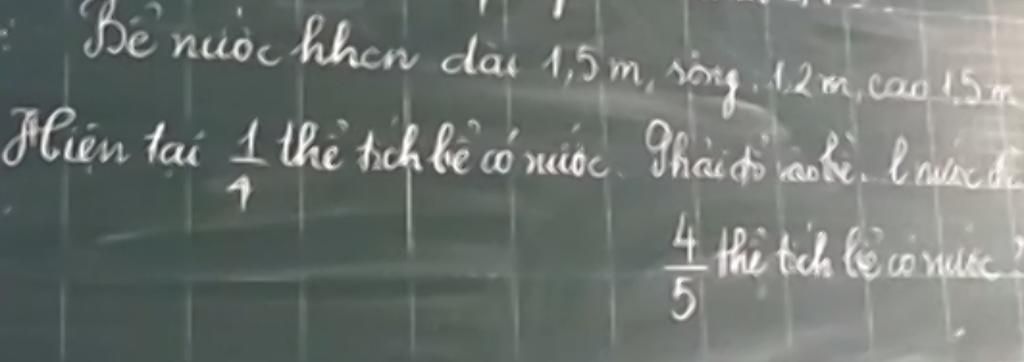 Bể nước hhcn dài 1,5m, rộng 1,2m, cao 1,5m
Hiện tại 1/4 thể tích bể có nước. Phải đổ vào bể. l nước để
4/5 thể tích bể có nước?